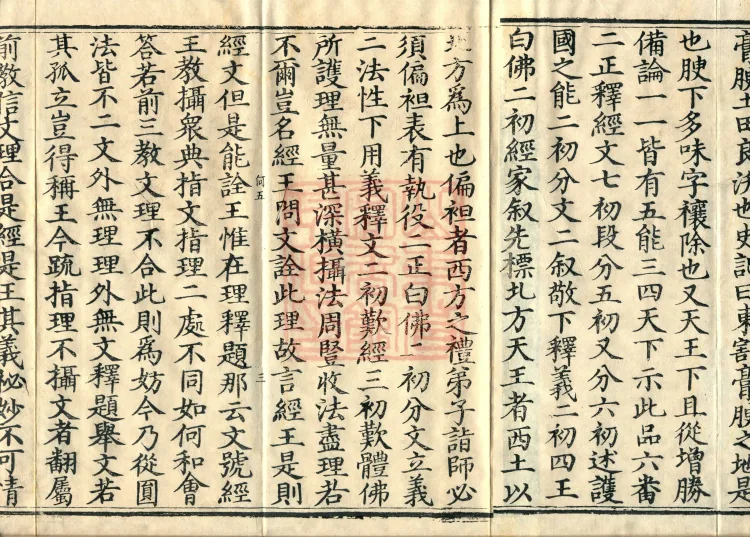 膏腴土田良沃也史記曰東割膏腴之地是
也腴下多味字禳除也又天王下且從增勝
備論一一皆有五能三四天下示此品六番
二正釋經文七初段分五初又分六初述護
國之能二初分文二叙敬下釋義二初四王
白佛二初經家叙先標北方天王者西土以
北方為上也偏袒者西方之禮弟子詣師必
須偏袒表有執役一正白佛二初分文立義
二法性下用義釋文二初歎經三初歎體佛
所護理無量甚深橫攝法周豎收法盡理若
不爾豈名經王問文詮此理故言經王是則
何五
三
經文但是能詮王惟在理釋題那云文號經
王教攝眾典指文指理二處不同如何和會
答若前三教文理不合此則為妨今乃從圓
法皆不二文外無理理外無文釋題舉文若
其孤立豈得稱王今疏指理不攝文者翻屬
前教信文理合是經是王其義祕妙不可情